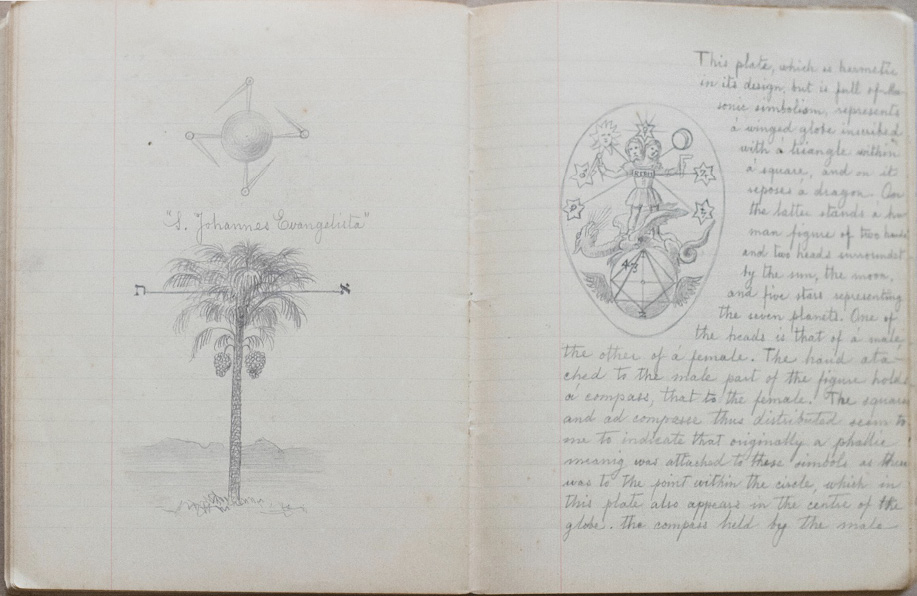 "S. Johannes Evangelista"
ת א
This plate, which is hermetic
in its design, but is full of Ma-
sonic simbolism, represents
a winged globe inscribed
with a triangle within
a square, and on it
reposes a dragon. On
the latter stands a hu
man figure of two hands
and two heads surrounded
by the sun, the moon,
and five stars representing
the seven planets. One of
the heads is that of a male,
the other of a female. The hand ata-
ched to the male part of the figure holds
a compass, that to the female. The square
and ad compasse thus distributed seem to
me to indicate that originally a phallic
meanig was attached to these simbols as there
was to the point within the circle, which in
this plate also appears in the centre of the
globe. the compass held by the male